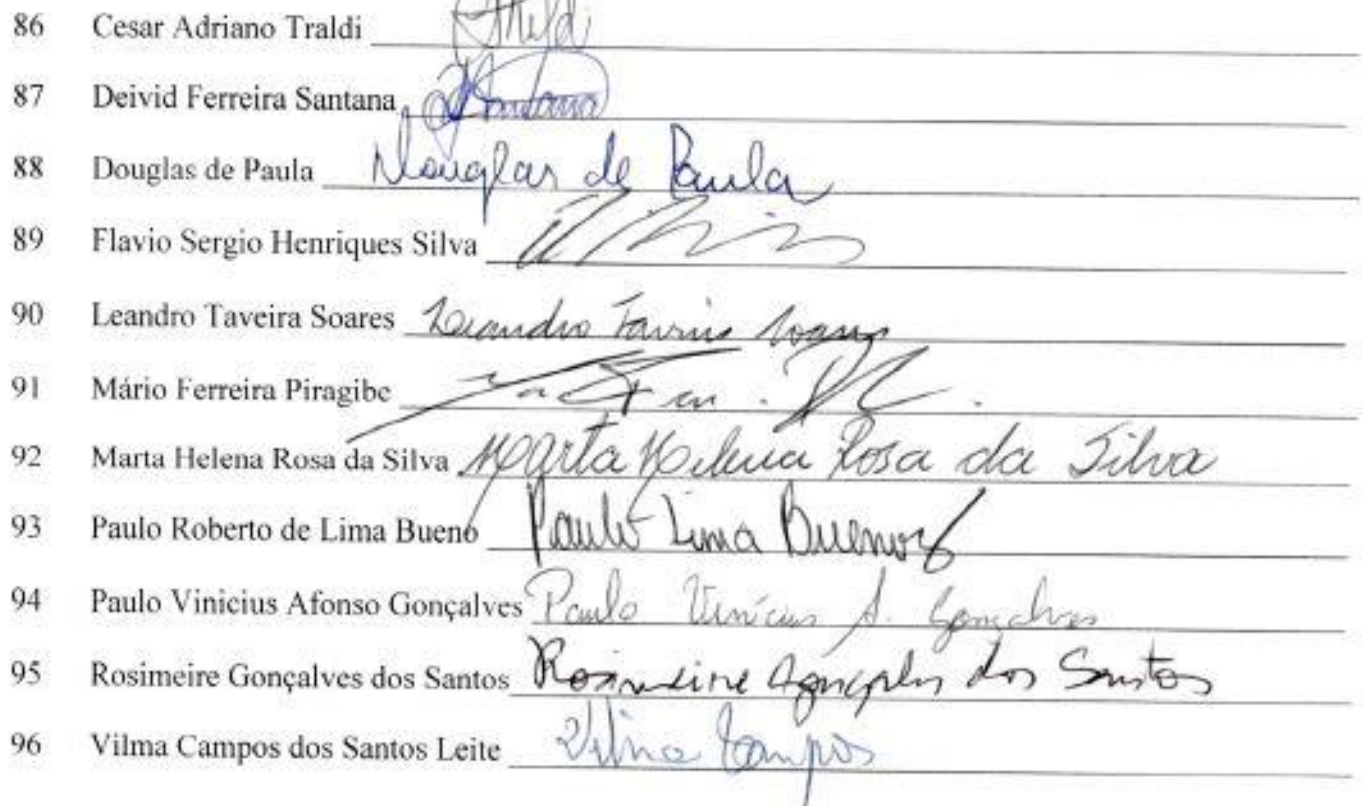 86 Cesar Adriano Traldi
87 Deivid Ferreira Santana Santana
88 Douglas de Paula Douglas de Paula
89 Flavio Sergio Henriques Silva
90 Leandro Taveira Soares Leandro
91 Mário Ferreira Piragibe
92 Marta Helena Rosa da Silva Marta Helena Rosa da Silva
93 Paulo Roberto de Lima Bueno Paulo Lima Bueno
94 Paulo Vinicius Afonso Gonçalves Paulo Vinícius A. Gonçalves
95 Rosimeire Gonçalves dos Santos Rosimeire Gonçalves dos Santos
96 Vilma Campos dos Santos Leite Vilma Campos